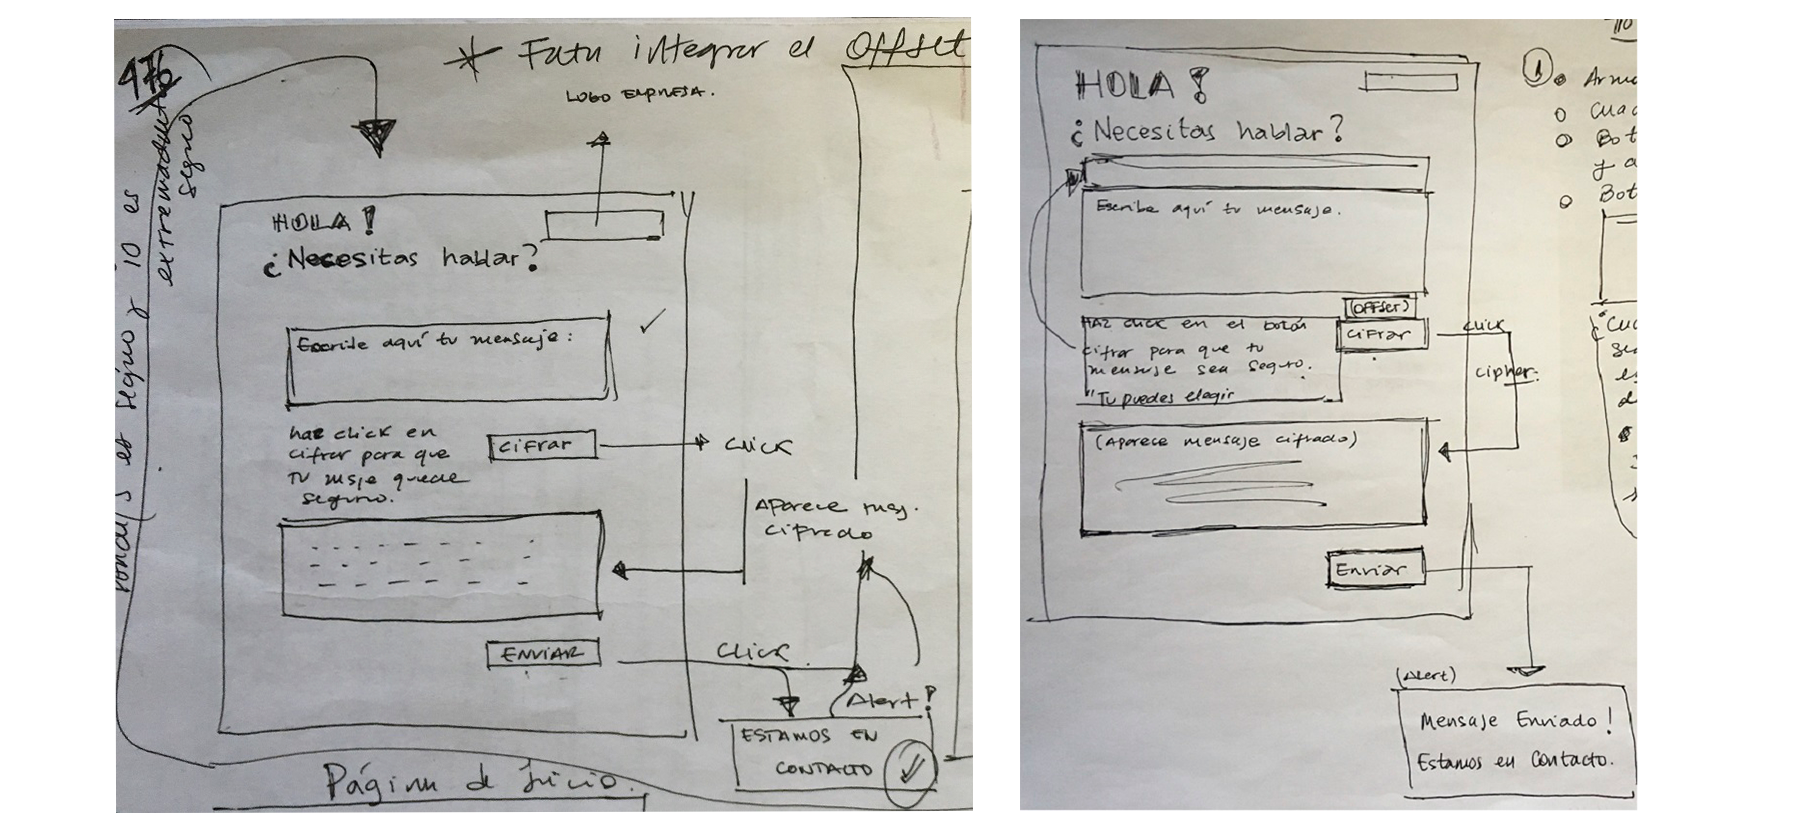 * Falta integrar el Offset
LOGO EMPRESA.
476
extremadamente
seguro
es seguro y 10 es
HOLA!
¿Necesitas hablar?
Escribe aquí tu mensaje:
haz click en
cifrar para que
tu msje quede
seguro.
CIFRAR
CLICK
Aparece msj.
cifrado
ENVIAR
CLICK
Alert?
ESTAMOS EN
CONTACTO
Página de Inicio.
HOLA!
¿Necesitas hablar?
Escribe aquí tu mensaje.
(OFFSET)
Haz click en el botón
cifrar para que tu
mensaje sea seguro.
"Tu puedes elegir
Cifrar
click
cipher.
(Aparece mensaje cifrado)
Enviar
(Alert)
Mensaje Enviado!
Estamos en Contacto.
1
Cuad
Bot
y a
Bot